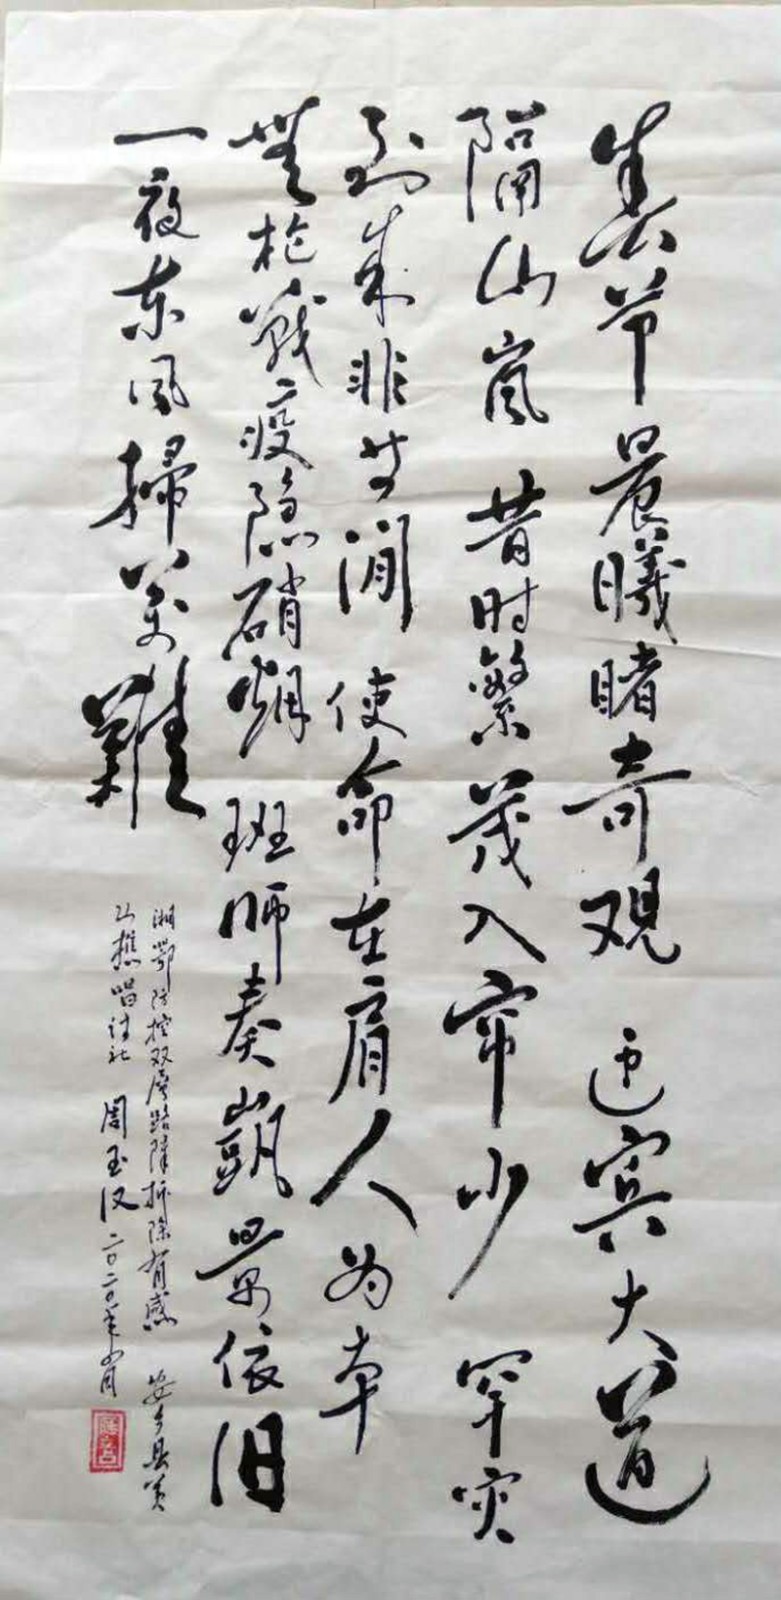 春节晨曦睹奇观 迎宾大道
隔山岚 昔时繁茂入帘少 罕灾
到来非等闲 使命在肩人为本
無枪戰疫隐硝烟 班师奏凱景依旧
一夜东风掃萬難
湘鄂防控双层路障拆除有感 安乡县黄
山樵唱诗社 周玉汉 二〇二〇年月